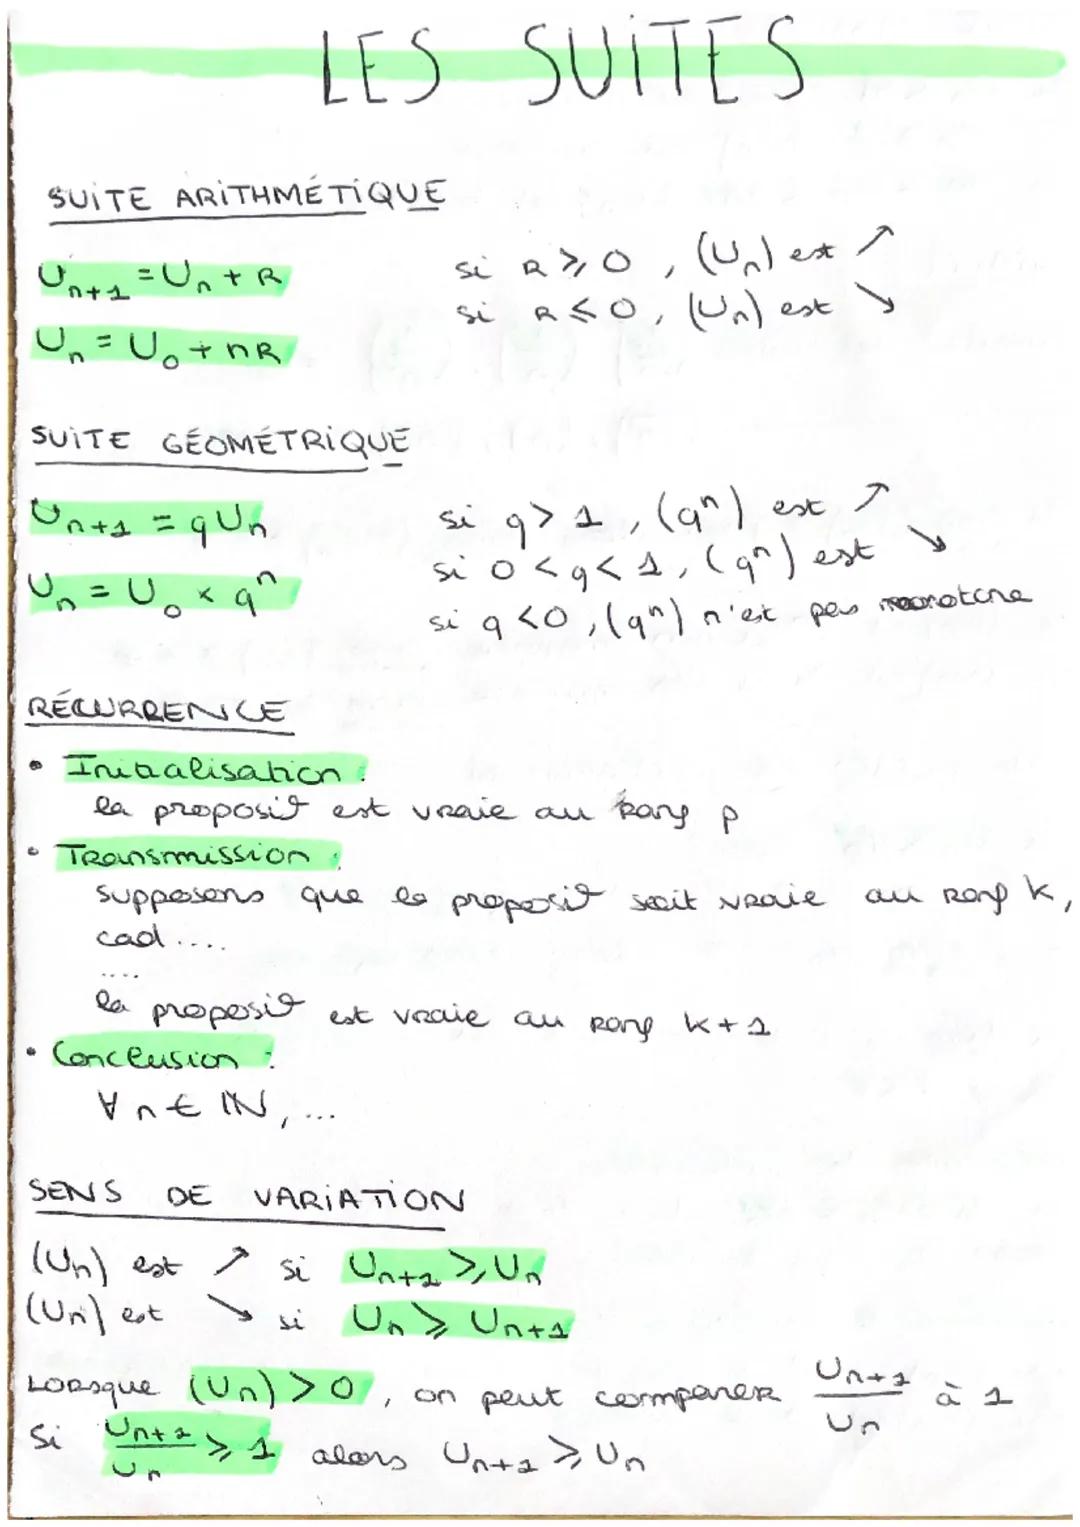 LES SUITES
SUITE ARITHMÉTIQUE
Uₙ₊₁ = Uₙ + R
si R ⩾ 0, (Uₙ) est ↗
si R ⩽ 0, (Uₙ) est ↘
Uₙ = U₀ + nR
SUITE GÉOMÉTRIQUE
Uₙ₊₁ = qUₙ
si q > 1, (qⁿ) est ↗
si 0 < q < 1, (qⁿ) est ↘
Uₙ = U₀ × qⁿ
si q < 0, (qⁿ) n'est pas monotone
RÉCURRENCE
• Initialisation :
la proposit° est vraie au rang p
• Transmission :
supposons que la proposit° soit vraie au rang k,
cad ....
....
la proposit° est vraie au rang k+1
• Conclusion :
∀ n ∈ ℕ, ...
SENS DE VARIATION
(Uₙ) est ↗ si Uₙ₊₁ ⩾ Uₙ
(Uₙ) est ↘ si Uₙ ⩾ Uₙ₊₁
Lorsque (Uₙ) > 0, on peut comparer Uₙ₊₁/Uₙ à 1
Si Uₙ₊₁/Uₙ ⩾ 1 alors Uₙ₊₁ ⩾ Uₙ